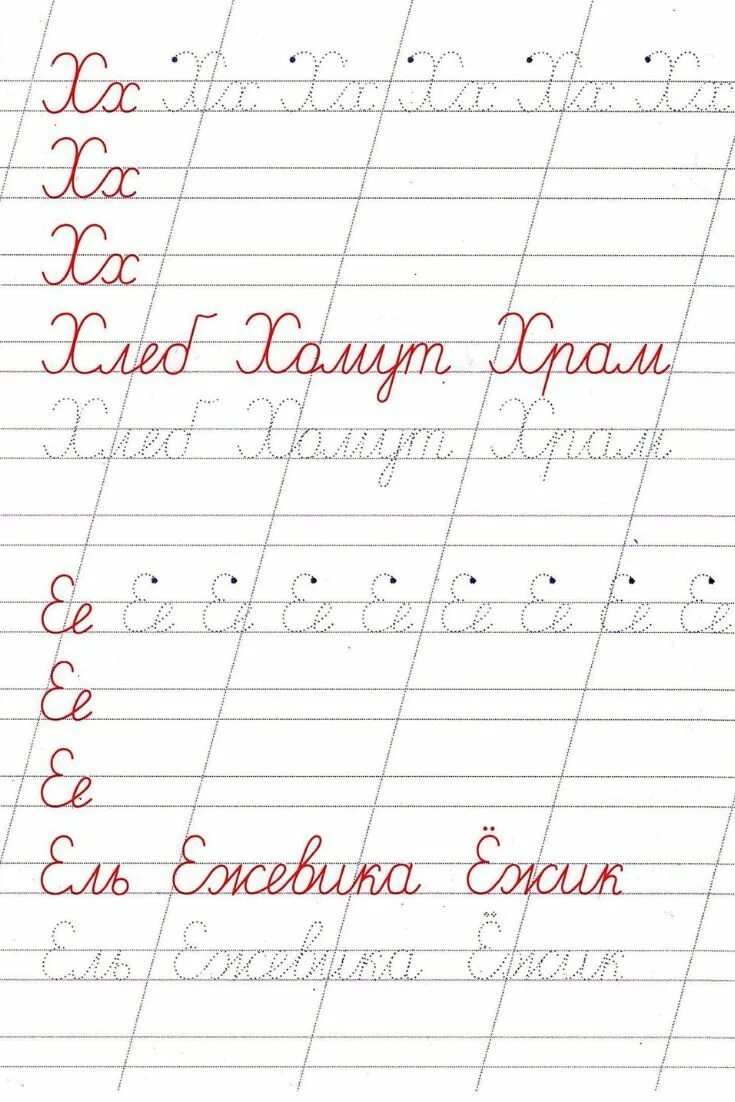 Хх Хх Хх Хх Хх Хх
Хх
Хх
Хлеб Хомут Храм
Хлеб Хомут Храм
Ее Ее Ее Ее Ее Ее Ее Ее Ее
Ее
Ее
Ель Ежевика Ёжик
Ель Ежевика Ёжик